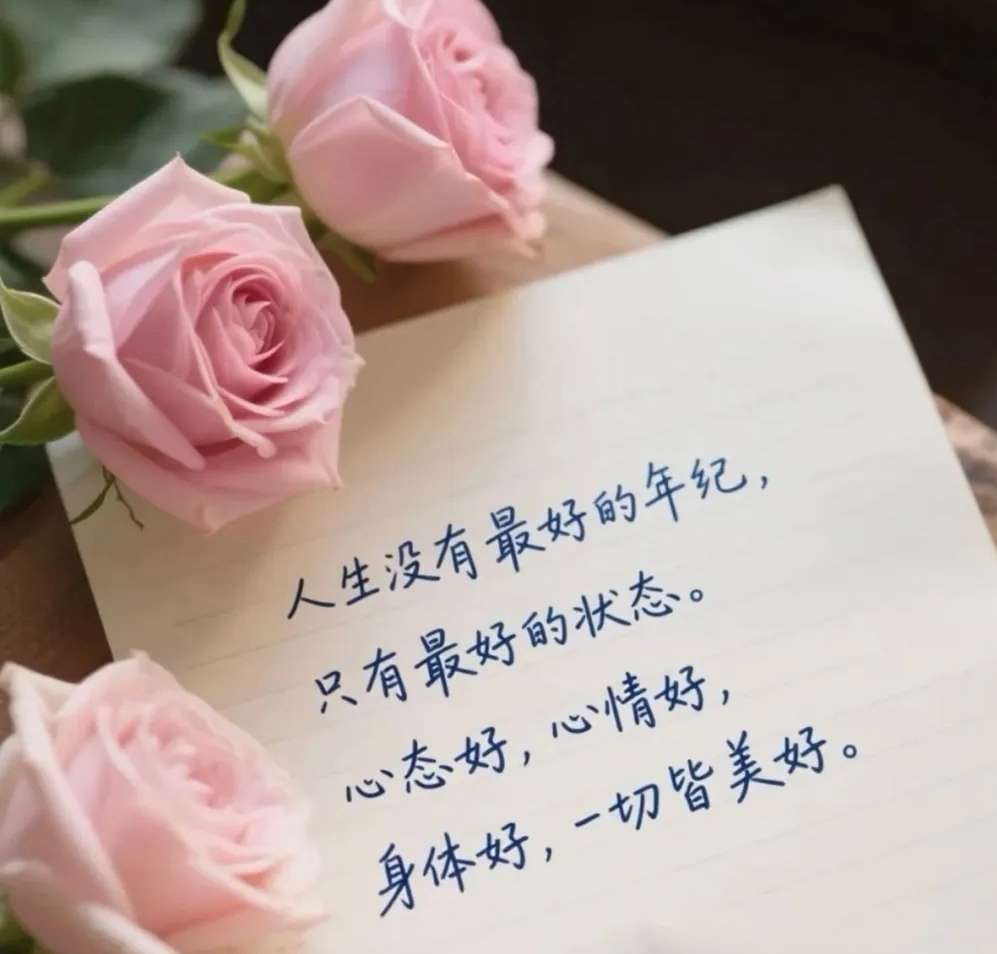 人生没有最好的年纪，
只有最好的状态。
心态好，心情好，
身体好，一切皆美好。